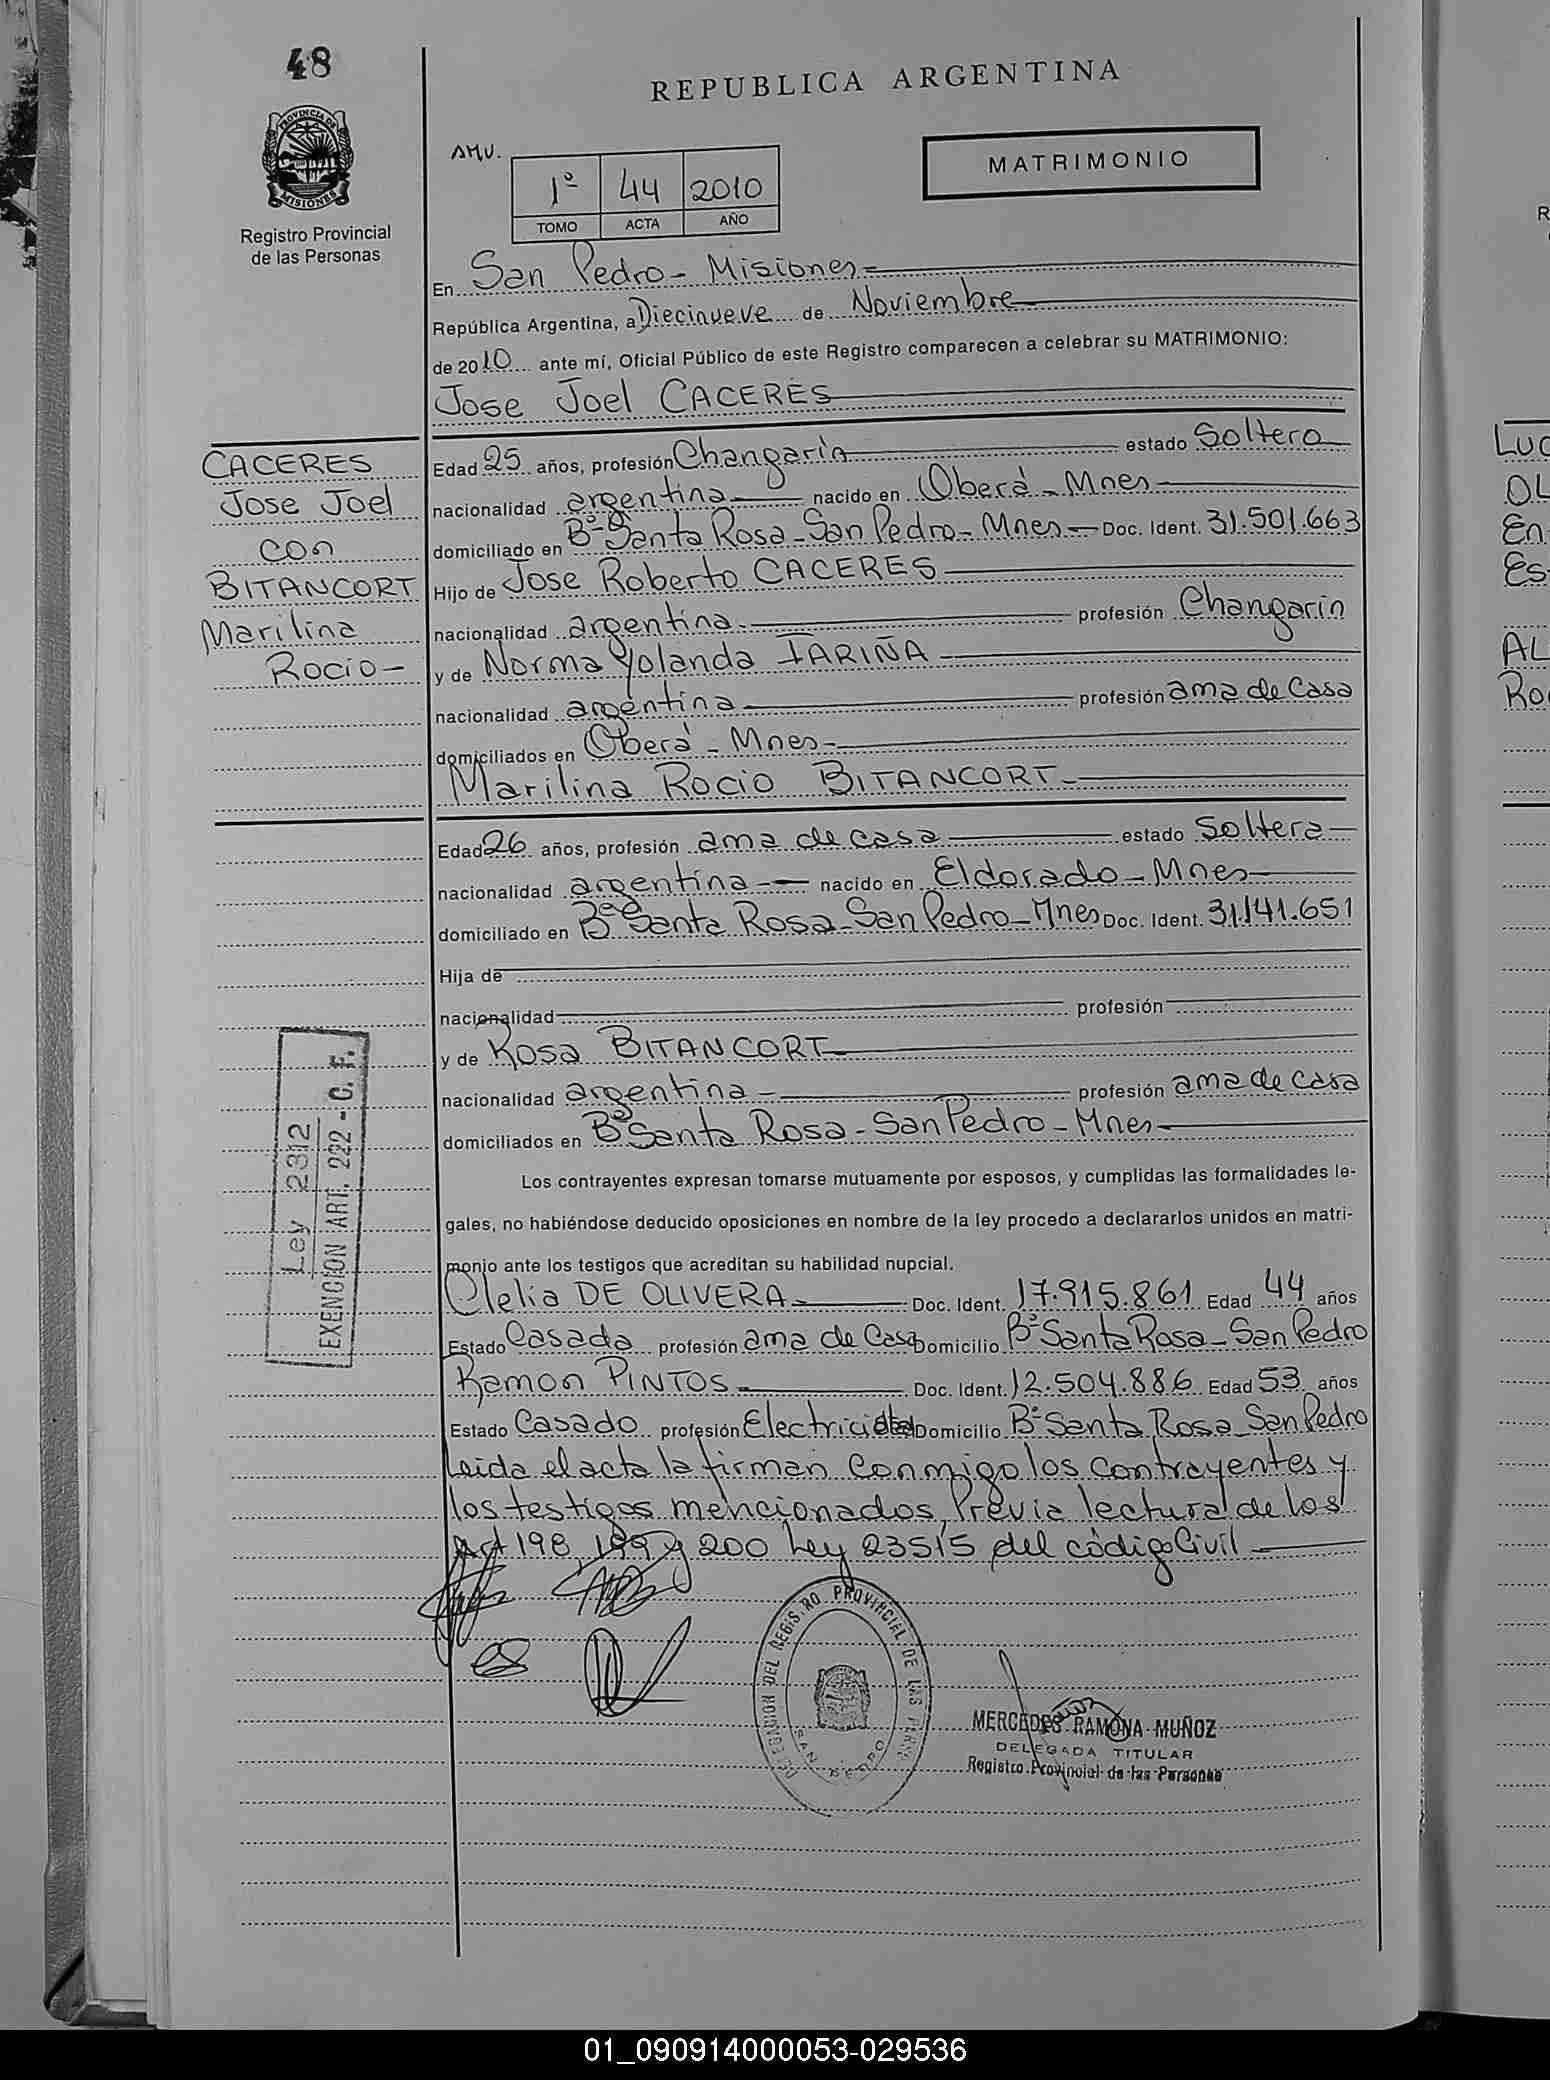 48
REPUBLICA ARGENTINA
PROVINCIA DE
MISIONES
Registro Provincial
de las Personas
AMU.
1º 44 2010
TOMO ACTA AÑO
MATRIMONIO
En San Pedro - Misiones
República Argentina, a Diecinueve de Noviembre
de 2010 ante mí, Oficial Público de este Registro comparecen a celebrar su MATRIMONIO:
Jose Joel CACERES
CACERES
Jose Joel
con
BITANCORT
Marilina
Rocio -
Edad 25 años, profesión Changarin estado Soltero
nacionalidad argentina nacido en Oberá - Mnes
domiciliado en Bº Santa Rosa - San Pedro - Mnes Doc. Ident. 31.501.663
Hijo de Jose Roberto CACERES
nacionalidad argentina profesión Changarin
y de Norma Yolanda FARIÑA
nacionalidad argentina profesión ama de Casa
domiciliados en Oberá - Mnes -
Marilina Rocio BITANCORT -
Edad 26 años, profesión ama de casa estado Soltera
nacionalidad argentina nacido en Eldorado - Mnes
domiciliado en Bº Santa Rosa - San Pedro - Mnes Doc. Ident. 31.141.651
Hija de
nacionalidad profesión
y de Rosa BITANCORT
nacionalidad argentina profesión ama de casa
domiciliados en Bº Santa Rosa - San Pedro - Mnes
Ley 2312
EXENCION ART. 222 - C. F.
Los contrayentes expresan tomarse mutuamente por esposos, y cumplidas las formalidades le-
gales, no habiéndose deducido oposiciones en nombre de la ley procedo a declararlos unidos en matri-
monio ante los testigos que acreditan su habilidad nupcial.
Clelia DE OLIVERA Doc. Ident. 17.915.861 Edad 44 años
Estado Casada profesión ama de Casa Domicilio Bº Santa Rosa - San Pedro
Ramon PINTOS Doc. Ident. 12.504.886 Edad 53 años
Estado Casado profesión Electricista Domicilio Bº Santa Rosa - San Pedro
Leida el acta la firman conmigo los contrayentes y
los testigos mencionados, Previa lectura de los
Art 198, 199 y 200 Ley 23515 del código Civil
DELEGACION DEL REGISTRO PROVINCIAL DE LAS PERS.
SAN PEDRO
MERCEDES RAMONA MUÑOZ
DELEGADA TITULAR
Registro Provincial de las Personas
R
LUC
OL
En
Es
AL
Ro
01_090914000053-029536